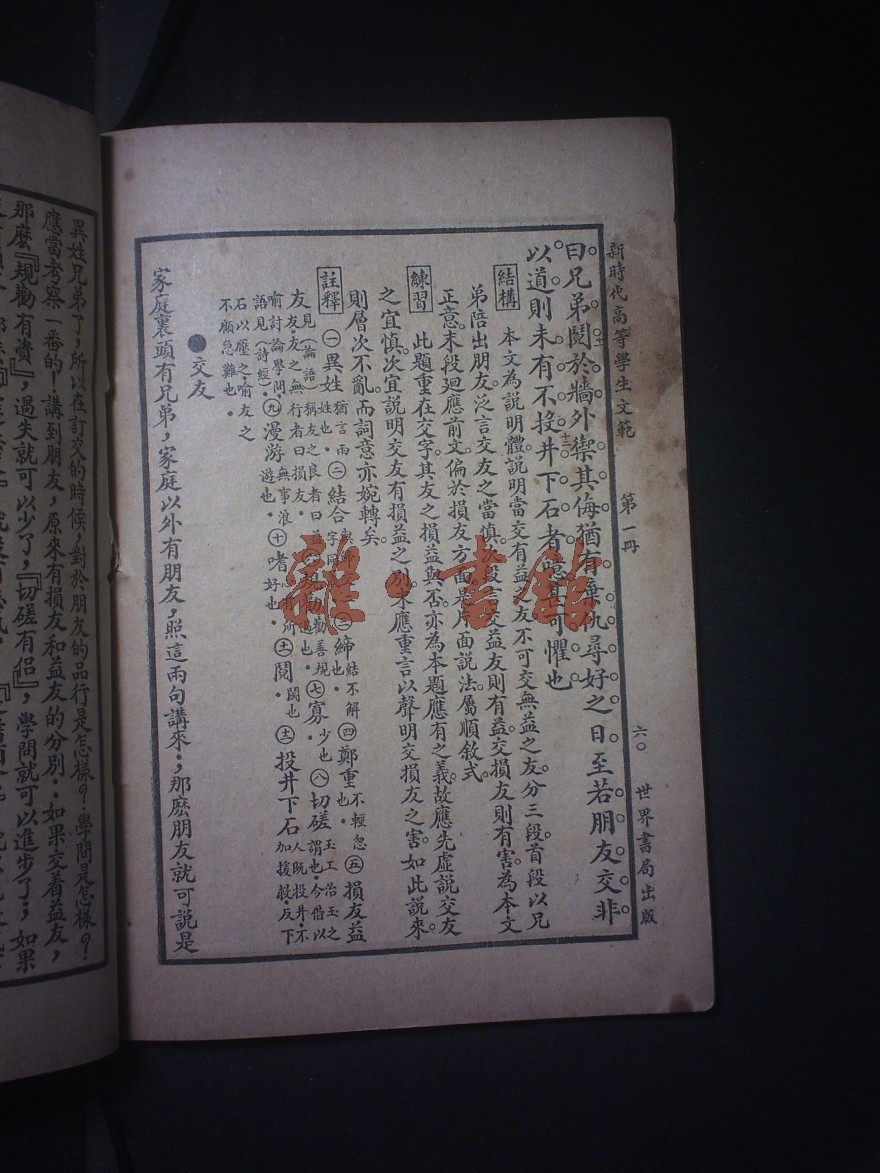 新時代高等學生文範 第一冊 六〇 世界書局出版
曰兄弟鬩於牆外禦其侮猶有棄仇尋好之日。至若朋友交非
以道則未有不投井下石者。隱甚可懼也
結構 本文為說明體說明當交有益之友不可交無益之友。分三段。首段以兄
弟陪出朋友。泛言交友之當慎。段言交益友則有益。交損友則有害。為本文
正意。末段迴應前文。偏於損友方面。是片面說法。屬順敘式。
練習 此題重在交字。其友之損益與否。亦為本題應有之義。故應先虛說交友
之宜慎。次宜說明交友有損益之別。末應重言以聲明交損友之害。如此說來。
則層次不亂。而詞意亦婉轉矣。
註釋 ㊀異姓 猶言兩姓也。㊁結合 ㊂締 結不解 ㊃鄭重 不輕忽也。㊄損友益
友 見(論語)稱友之良者曰益友。友之無行者曰損友。勸善規過也。㊆寡 少也 ㊇切磋 玉工治玉之謂也。今借以
喻討論學問。㊈漫游 無事浪遊也。㊉嗜 心有所好也。⑪鬩 鬭也 語見(詩經)。⑫投井下石 人既投井。不加援救。反下
石以壓之。喻友之不顧急難也。
交友
家庭裏頭有兄弟，家庭以外有朋友，照這兩句講來，那麼朋友就可說是
異姓兄弟了，所以在訂交的時候，對於朋友的品行是怎樣？學問是怎樣？
應當考察一番的！講到朋友，原來有損友和益友的分別．如果交着益友，
那麼『規勸有資』，過失就可以少了，『切磋有侶』，學問就可以進步了；如果
雜·書館